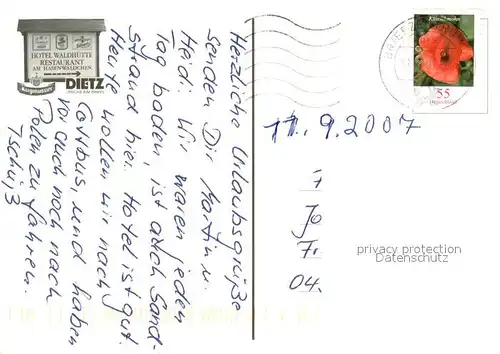 HOTEL WALDHÜTTE
RESTAURANT
AM HASENWÄLDCHEN
DIETZ
Herzliche Urlaubsgrüße
senden Dir Martin u.
Heidi. Wir waren jeden
Tag baden, ist auch Sand-
strand hier. Hotel ist gut.
Heute wollen wir nach
Cottbus, und haben
vor auch noch nach
Polen zu fahren.
Tschüß
BRIEFZ
Klatschmohn
55
Deutschland
11.9.2007
F
Jo
Fr
04.
privacy protection
Datenschutz